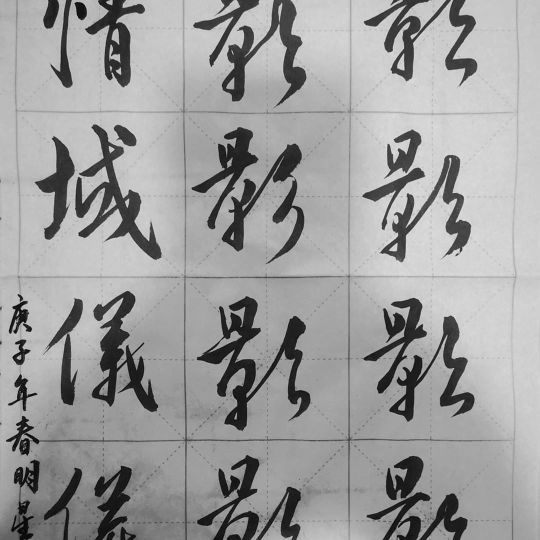 影影影影
影影影影
情域儀儀
庚子年春明星